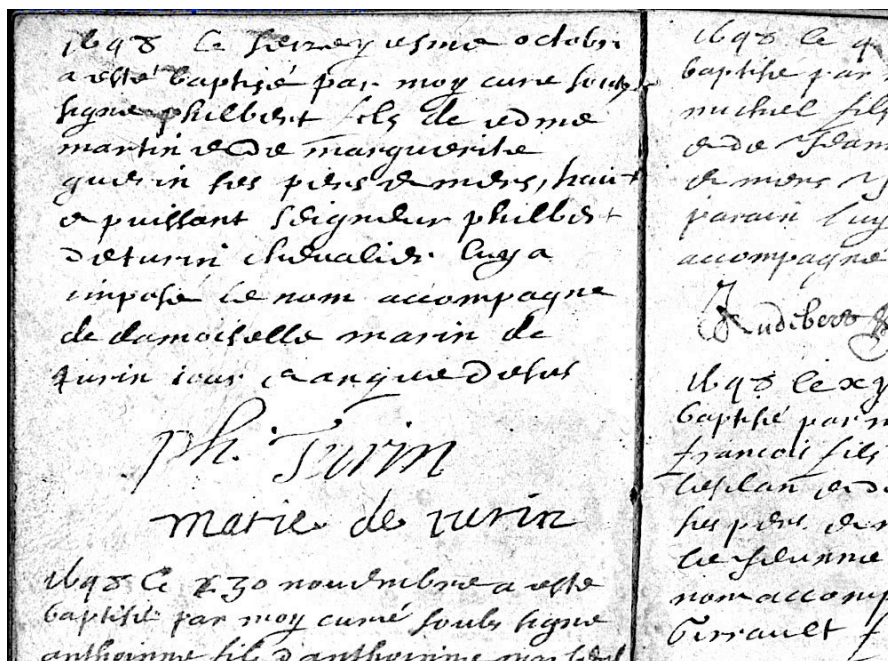 1698 le seizeyesme octobre
a esté baptisé par moy curé soubz
signe philbert fils de edme
martin et de marguerite
guerin ses pere et mere, haut
et puissant seigneur philbert
de turin chevalier luy a
imposé le nom accompagne
de damoiselle marin de
turin jour et an que desus
ph. Turin
marie de turin
1698 le 30 novembre a este
baptisé par moy curé soubs signe
anthoinne fils d'anthoinne
1698 le
baptisé par
michel fils
et de Jeanne
et mere
parain luy
accompagne
1698 le
baptisé par m
francois fils
et de
ses pere et m
le
nom accomp
Perrault